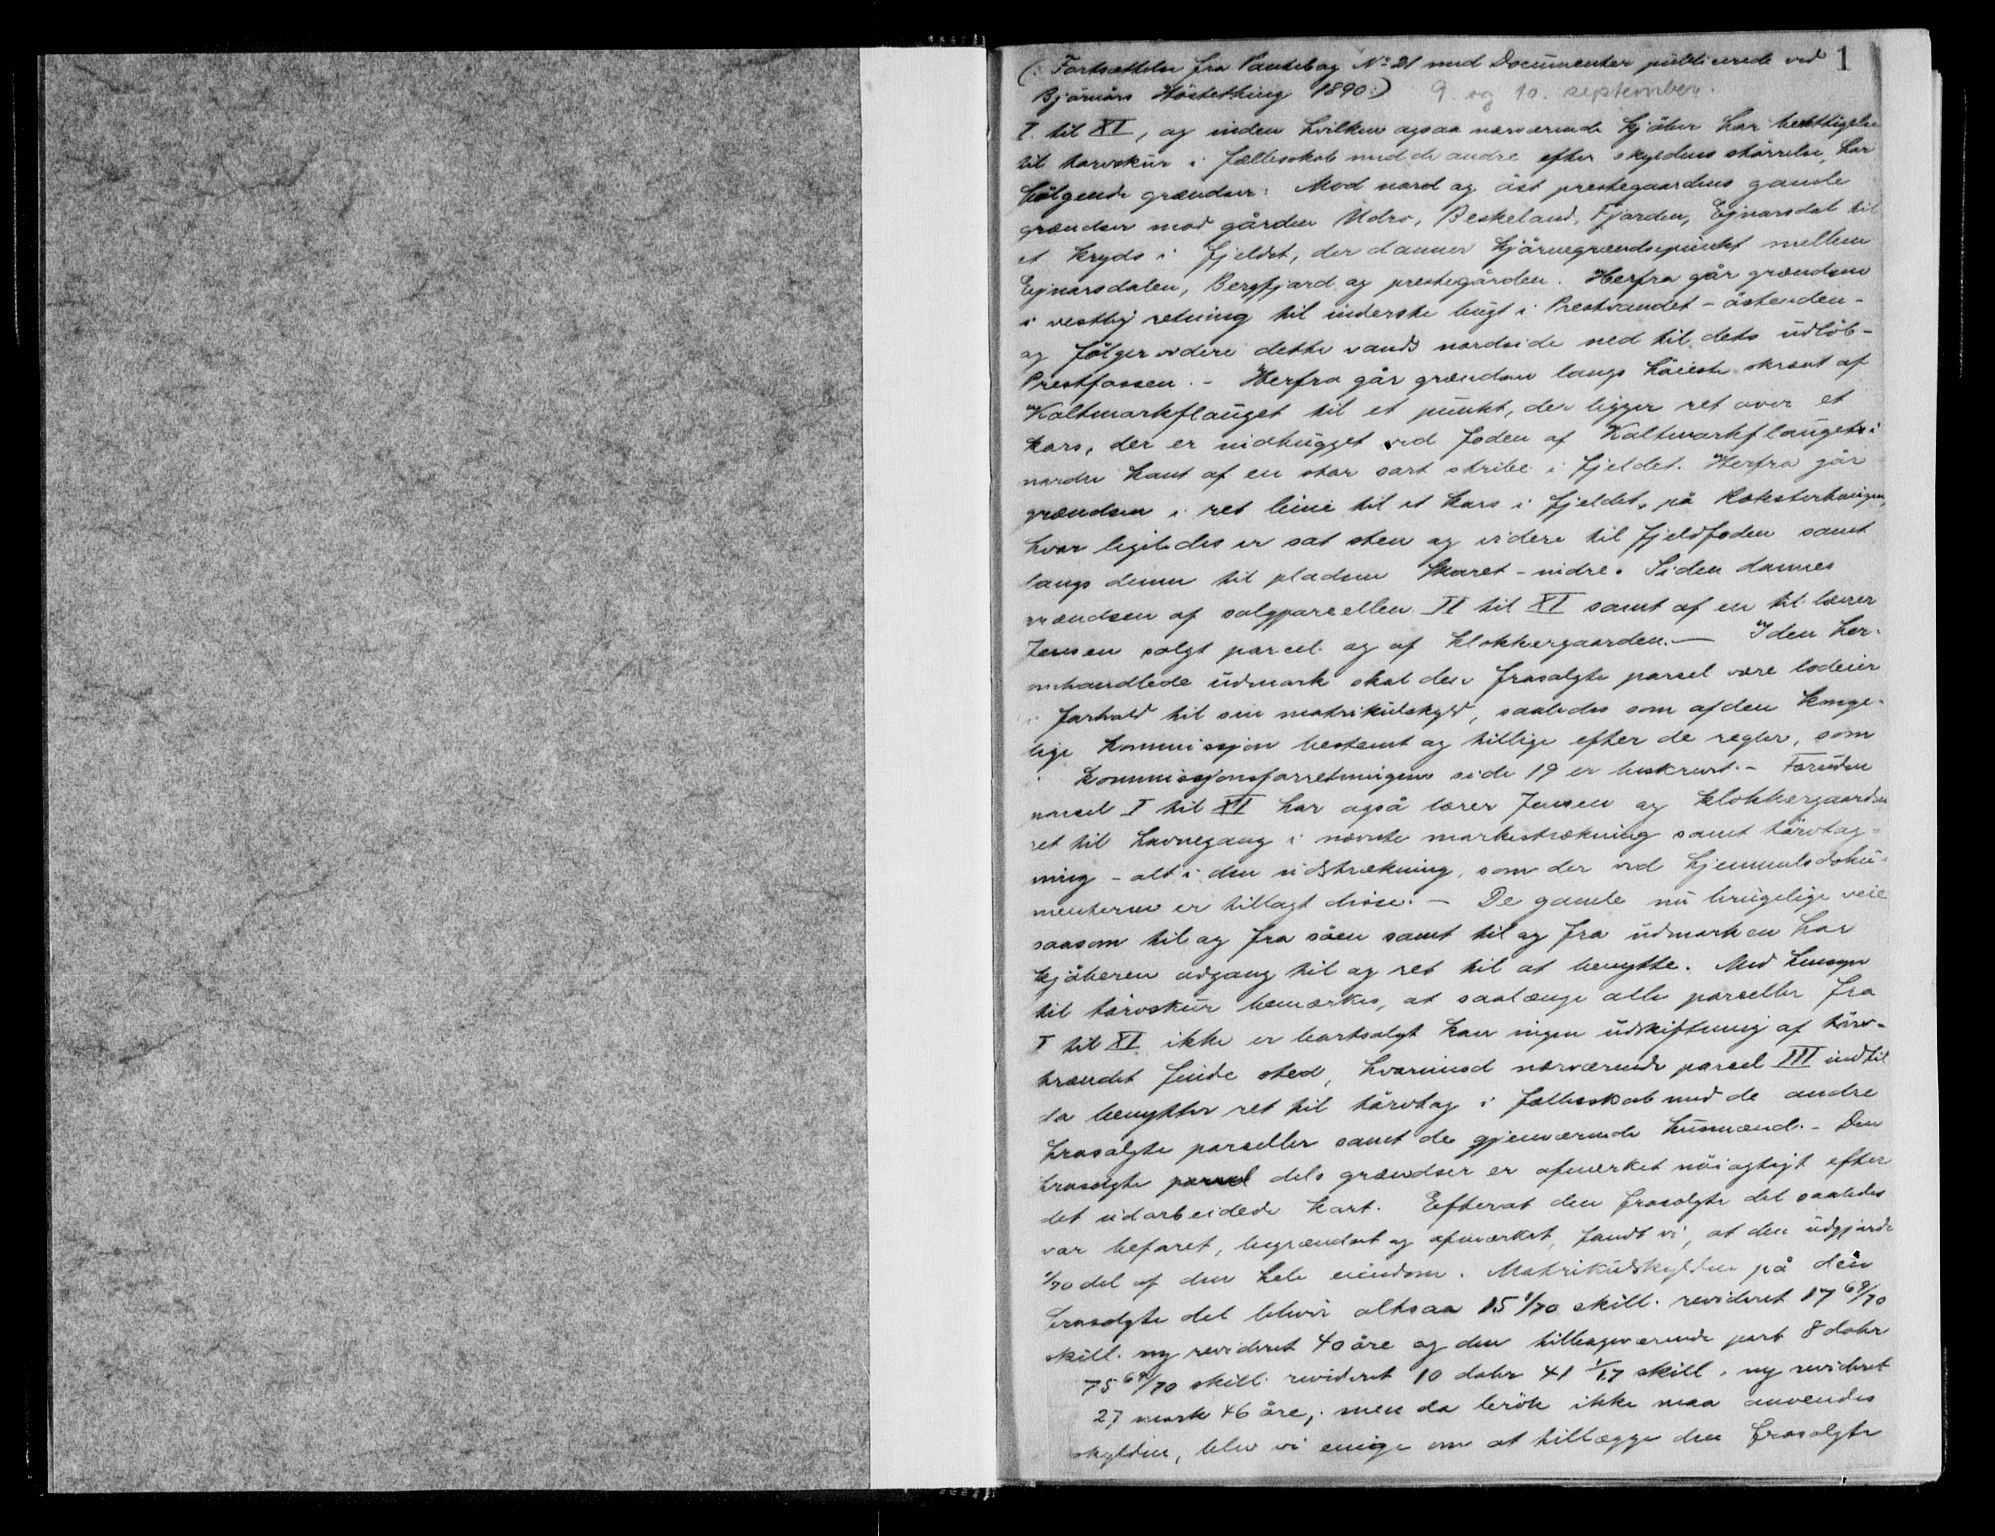 1
(: Fortsættelse fra Pantebog No 21 med Documenter publicerede ved
Bjørnørs Høstething 1890:) 9. og 10. september.
I. til XI, og inden hvilken ogsaa nærværende kjøber har berettigelse
til torvskur i fællesskab med de andre efter skyldens størrelse, har
følgende grændser: Mod nord og øst prestegaardens gamle
grændser mod gården Udro, Beskeland, Fjorden, Ejnarsdal til
et kryds i fjeldet, der danner hjørnegrændsepunkt mellem
Ejnarsdalen, Bergfjord og prestegården. Herfra går grændsen
i vestlig retning til inderste bugt i Prestvandet – østenden –
og følger videre dette vands nordside ned til dets udløb –
Prestfossen. – Herfra går grændsen langs høieste skrent af
Kaltmarkflauget til et punkt, der ligger ret over et
kors, der er indhugget ved foden af Kaltmarkflaugets i
nordre kant af en stor sort stribe i fjeldet. Herfra går
grændsen i ret linie til et kors i fjeldet, på
hvor ligeledes er sat sten og videre til fjeldfoden samt
langs denne til pladsen Skaret – nidre. Siden dannes
grændsen af salgparcellen II til XI samt af en til lærer
Jensen solgt parcel og af klokkergaarden. – I den her-
omhandlede udmark skal den frasolgte parsel være lodeier
i forhold til sin matrikulskyld, saaledes som af den konge-
lige kommissjon bestemt og tillige efter de regler, som
i kommissjonsforretningens side 19 er beskrevet. – Foruden
parsel I til XI har også lærer Jensen og klokkergaarden
ret til havnegang i nævnte markstrækning samt törvtag-
ning – alt i den udstrækning, som der ved hjemmelsdoku-
menterne er tillagt disse. – De gamle nu brugelige veie
saasom til og fra søen samt til og fra udmarken har
kjøberen adgang til og ret til at benytte. Med hensyn
til törvskur bemærkes, at saalænge alle parseller fra
I til XI ikke er bortsolgt kan ingen udskiftning af törv-
trændet finde sted, hvorimod nærværende parsel III indtil
da benytter ret til törvtag i fællesskab med de andre
frasolgte parseller samt de gjenværende husmænd. – Den
frasolgte parsel dels grændser er afmerket nöiagtigt efter
det udarbeidede kart. Efterat den frasolgte del saaledes
var befaret, begrændset og afmærket, fandt vi, at den udgjorde
1/70 del af den hele eiendom. Matrikulskylden på den
frasolgte del blevir altsaa 15 1/70 skill. revideret 17 69/70
skill. ny revideret 40 öre og den tilbageværende part 8 daler
75 69/70 skill. revideret 10 daler 41 1/17 skill. ny revideret
27 mark 46 öre; men da brök ikke maa anvendes
skylden, blev vi enige om at tillægge den frasolgte